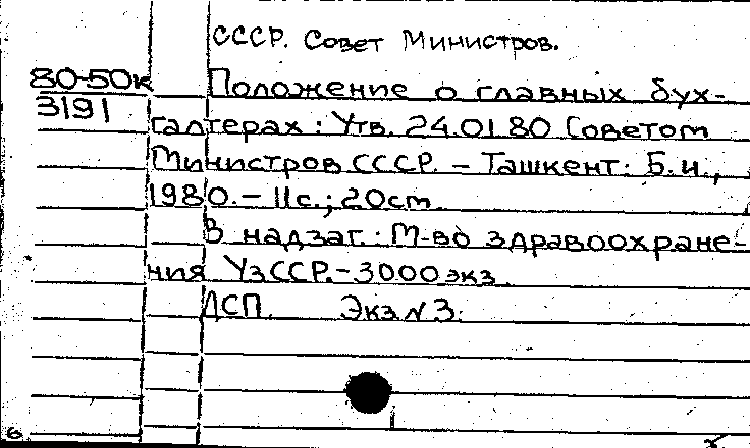 СССР. Совет Министров.
80-50к Положение о главных бух-
3191
галтерах: Утв. 24.01.80 Советом
Министров СССР. – Ташкент: Б.и.,
1980. – 11с.; 20см.
В надзаг.: М-во здравоохране-
ния УзССР. – 3000экз.
ДСП. Экз N 3.
6